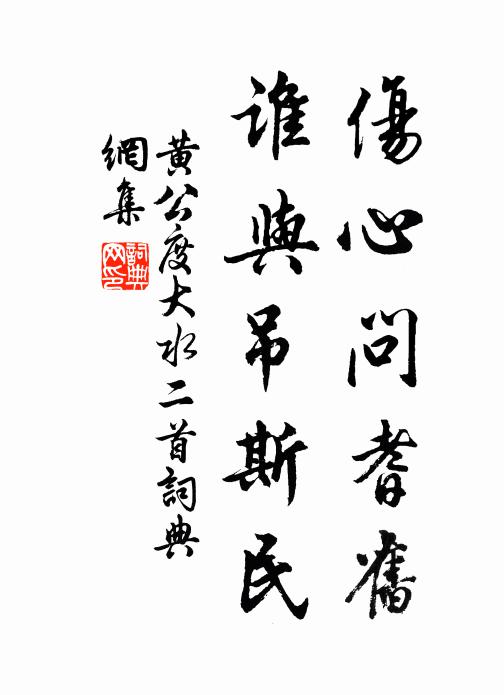 傷心問耆舊
誰與吊斯民
黃公度大水二首詞典
網集
詞典網印